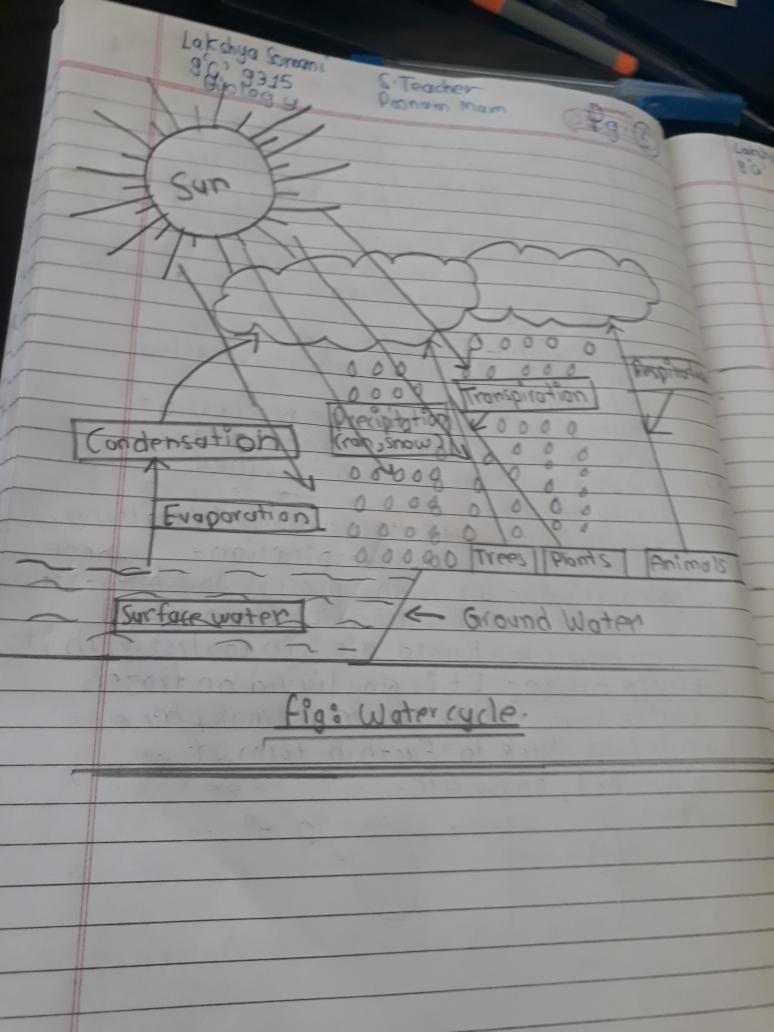 Lakshya Somani
9'C' 9315
Biology
S. Teacher
Poonam Mam
Pg.
Sun
Transpiration
Precipitation
Condensation
Evaporation
Trees Plants Animals
Surface water
Ground Water
fig: Water cycle.